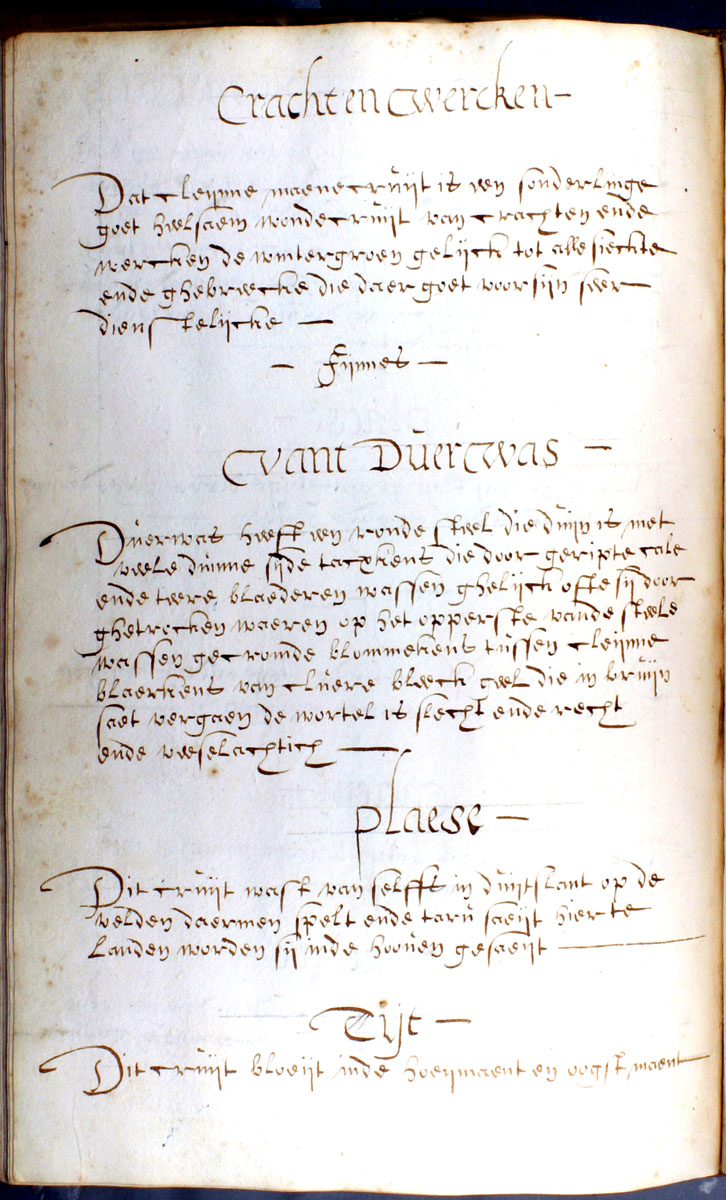 Cracht en Wercken
Dat cleijnne maenecruijt is een sonderlinge
goet heelsaem wondecruijt van crachten ende
wercken de wintergroen gelijck tot alle sieckte
ende ghebrecke die daer goet voor sijn seer
dienstelijcke
Fijnnes
Vant Duerwas
Duerwas heeft een ronde steel die duin is met
veele dunne sijde tacxkens die door geripte cale
ende teere blaederen wassen ghelijck ofte sij door
ghetrocken waeren op het opperste vande steele
wassen gecronde blommekens tussen cleijnne
blaerkens van cluere bleeck geel die in bruijn
saet vergaen de wortel is slecht ende recht
ende veeselachtich
Plaese
Dit cruijt wast van selffs in duijtslant op de
velden daermen spelt ende taru saeijt hier te
landen worden sij inde hooven gesaeijt
Tijt
Dit cruijt bloeijt inde hoeijmaent en oogst maent